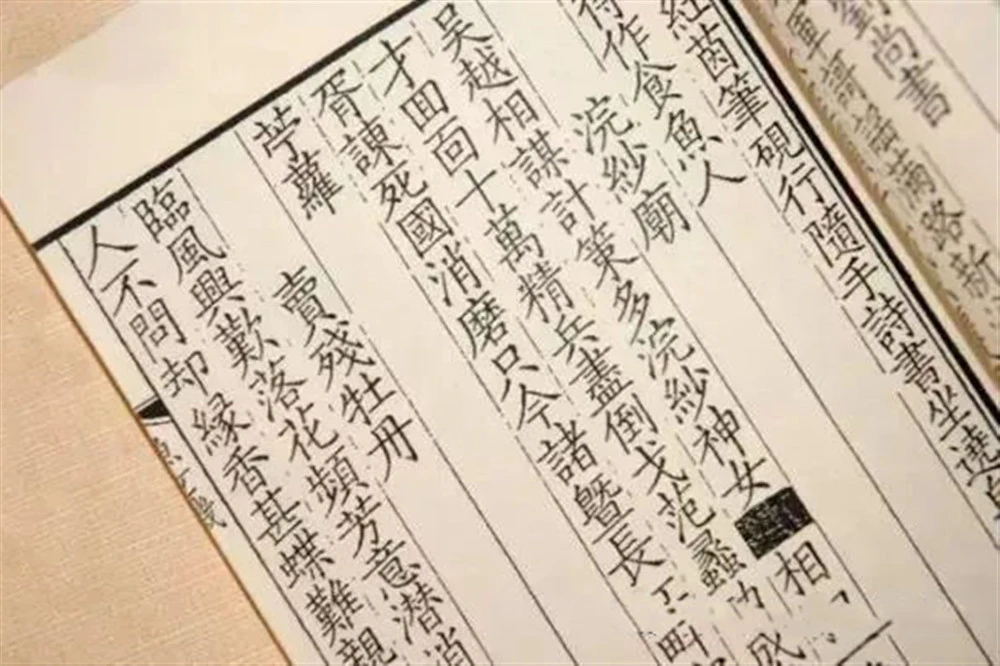 尚書
路新
紅茵筆硯行隨手詩書坐遶
得作食魚人
浣紗廟
吳越相謀計策多浣紗神女相
才囬面十萬精兵盡倒戈范蠡功成
胥諫死國消磨只今諸暨長江畔
苧蘿
賣殘牡丹
臨風興歎落花頻芳意潜消
人不問却緣香甚蝶難親